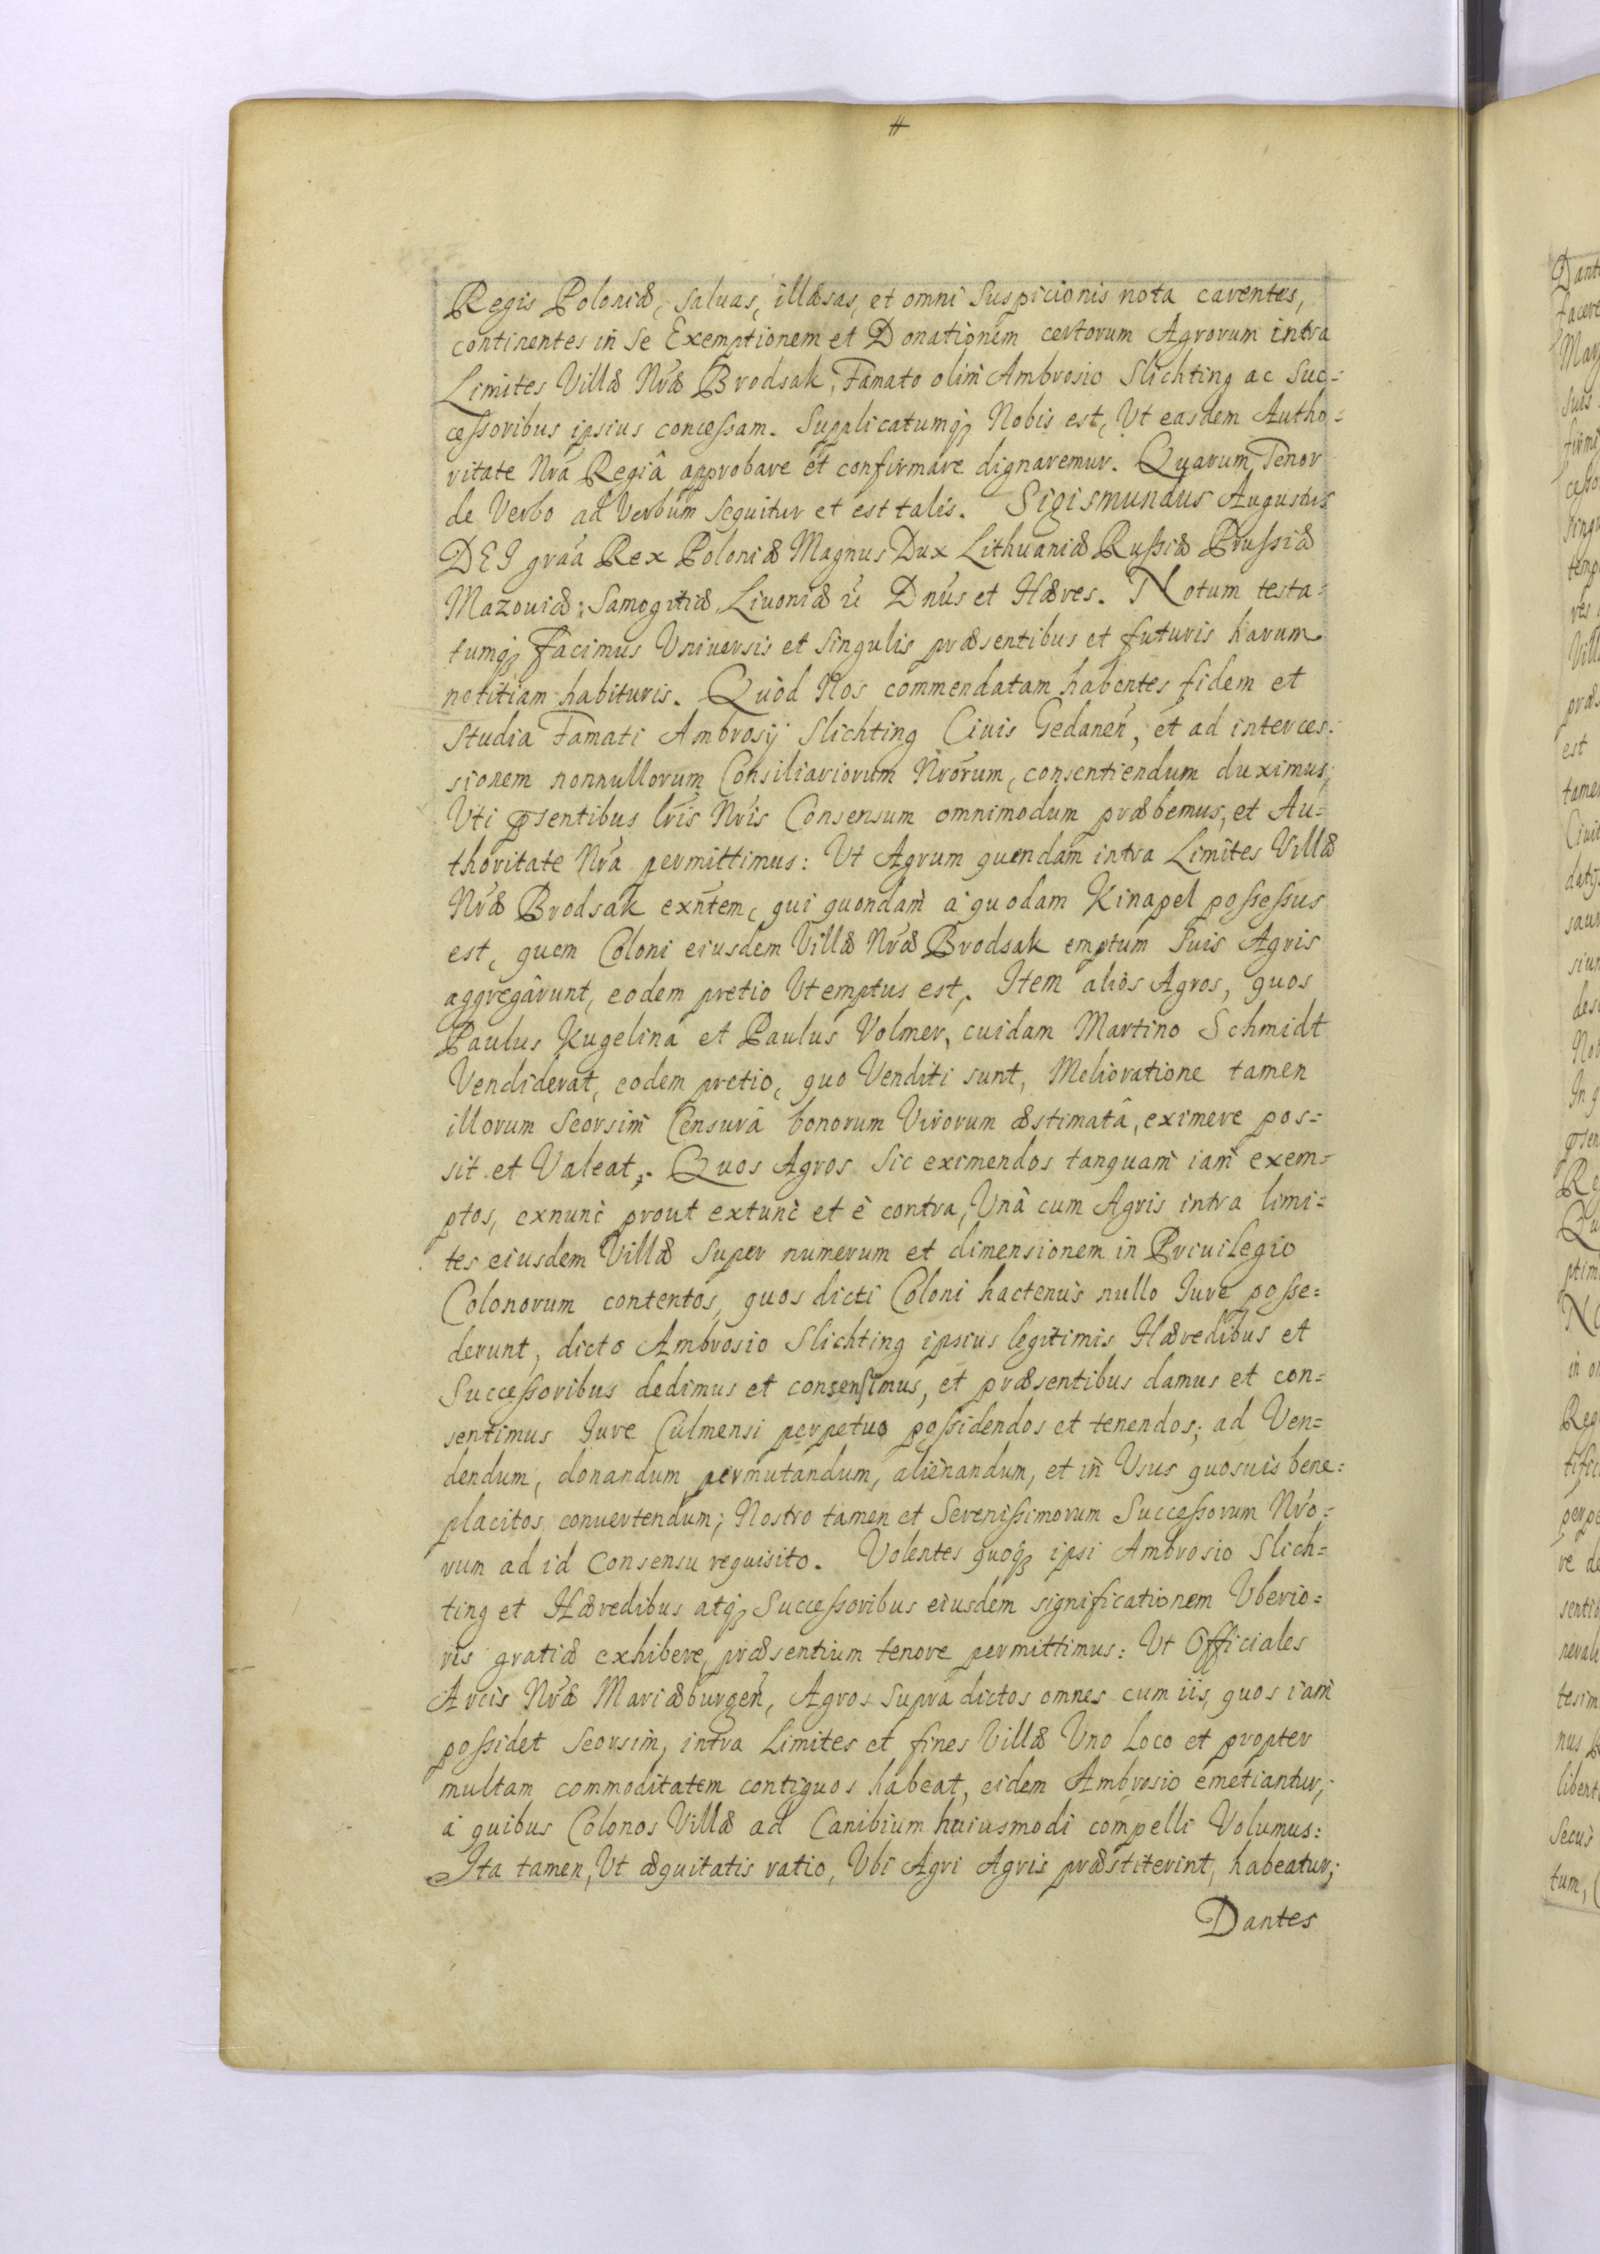 Regis Poloniæ, salvas, illæsas, et omni suspicionis nota carentes,
continentes in se Exemptionem et Donationem certorum Agrorum intra
Limites Villæ Nræ Brodsak, Famato olim Ambrosio Slichting ac Suc=
cessoribus ipsius concessam. Supplicatumq3 Nobis est, Ut easdem Autho=
ritate Nrâ Regiâ approbare et confirmare dignaremur. Quarum Tenor
de Verbo ad Verbum sequitur et est talis. Sigismundus Augustus
DEI graâ Rex Poloniæ Magnus Dux Lithuaniæ Russiæ Prussiæ
Mazoviæ, Samogitiæ, Livoniæ Dnus et Hæres. Notum testa=
tumq3 facimus Universis et singulis præsentibus et futuris harum
notitiam habituris. Quòd Nos commendatam habentes fidem et
studia Famati Ambrosij Slichting Ciuis Gedanen, et ad interces=
sionem nonnullorum Consiliariorum Nrorum, consentiendum duximus,
Uti psentibus lris Nris Consensum omnimodum præbemus, et Au=
thoritate Nrâ permittimus: Ut Agrum quendam intra Limites Villæ
Nræ Brodsak exntem, qui quondam à quodam Kinapel possessus
est, quem Coloni eiusdem Villæ Nræ Brodsak emptum suis Agris
aggregârunt, eodem pretio Ut emptus est, Item aliòs Agros, quos
Paulus Kugelina et Paulus Volmer, cuidam Martino Schmidt
Vendiderat, eodem pretio, quo Venditi sunt, Melioratione tamen
illorum Seorsim Censurâ bonorum Virorum æstimatâ, eximere pos=
sit et Valeat, Quos Agros sic eximendos tanquam iam exem=
ptos, exnunc prout extunc et è contra, Unâ cum Agris intra limi=
tes eiusdem Villæ super numerum et dimensionem in Privilegio
Colonorum contentos, quos dicti Coloni hactenus nullo Iure posse=
derunt, dicto Ambrosio Slichting ipsius legitimis Hæredibus et
Successoribus dedimus et consensimus, et præsentibus damus et con=
sentimus Iure Culmensi perpetuo possidendos et tenendos; ad Ven=
dendum, donandum, permutandum, alienandum, et in Usus quosuis bene=
placitos convertendum; Nostro tamen et Serenissimorum Successorum Nro=
rum ad id Consensu requisito. Volentes quoq3 ipsi Ambrosio Slich=
ting et Hæredibus atq3 Successoribus eiusdem significationem Uberio=
ris gratiæ exhibere, præsentium tenore permittimus: Ut Officiales
Arcis Nræ Mariæburgen, Agros supra dictos omnes cum iis, quos iam
possidet seorsim, intra Limites et fines Villæ Uno loco et propter
multam commoditatem contiguos habeat, eidem Ambrosio emetiantur;
à quibus Colonos Villæ ad Canibium huiusmodi compelli Volumus:
Ita tamen, Ut æquitatis ratio, Ubi Agri Agris præstiterint, habeatur;
Dantes